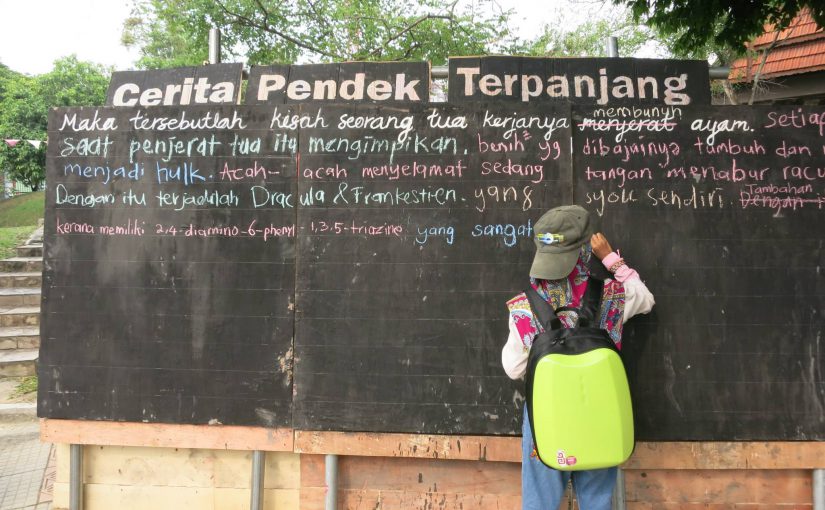 Cerita Pendek Terpanjang
membunuh
Maka tersebutlah kisah seorang tua kerjanya menjerat ayam. setiap
saat penjerat tua itu mengimpikan. benih² yg dibajainya tumbuh dan
menjadi hulk. Acah - acah menyelamat sedang tangan menabur
Tambahan
Dengan itu terjadulah Dracula & Frankestien. yang syok sendiri. Dengan
kerana memiliki 2,4-diamino-6-phenyl-1,3,5-triazine yang sangat